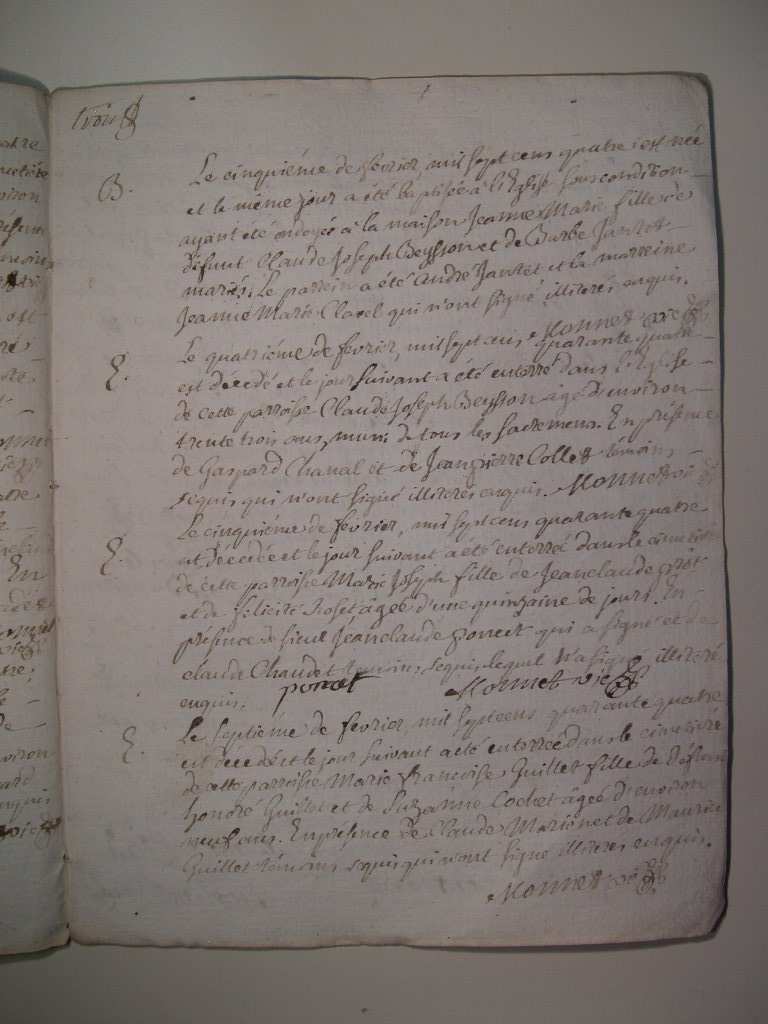 trois
B. Le cinquiéme de fevrier, mil sept cens quatre est née
et le même jour a été baptisée à l'Eglise sous condition
ayant été ondoyée à la maison Jeanne Marie fille de
défunt Claude Joseph Beysson et de Burbe Jantet
mariés. Le parrein a été André Jantet et la marreine
Jeanne Marie Clavel qui n'ont signé illiterés enquis.
Monnet vic
E. Le quatriéme de fevrier, mil sept cens quarante quatre
est décédé et le jour suivant a été enterré dans l'Eglise
de cette parroisse Claude Joseph Beysson âgé d'environ
trente trois ans, muni de tous les sacremens. En présence
de Gaspard Chanal et de Jeanpierre Collet témoins
requis qui n'ont signé illiterés enquis. Monnet vic
E. Le cinquiéme de fevrier, mil sept cens quarante quatre
est décédée et le jour suivant a été enterrée dans le cimetiére
de cette parroisse Marie Joseph fille de Jeanclaude
et de felicité Roset âgée d'une quinzaine de jours. En
présence de sieur Jeanclaude poncet qui a signé et de
claude Chaudet temoins requis lequel n'a signé illiteré
enquis. poncet Monnet vic
E. Le septiéme de fevrier, mil sept cens quarante quatre
est décédée et le jour suivant a été enterrée dans le cimetiére
de cette parroisse Marie Francoise Guillet fille de défunt
honoré Guillet et de Suzanne Cochet âgée d'environ
neuf ans. En presence de Claude Marion et de Maurice
Guillet témoins requis qui n'ont signé illiterés enquis.
Monnet vic